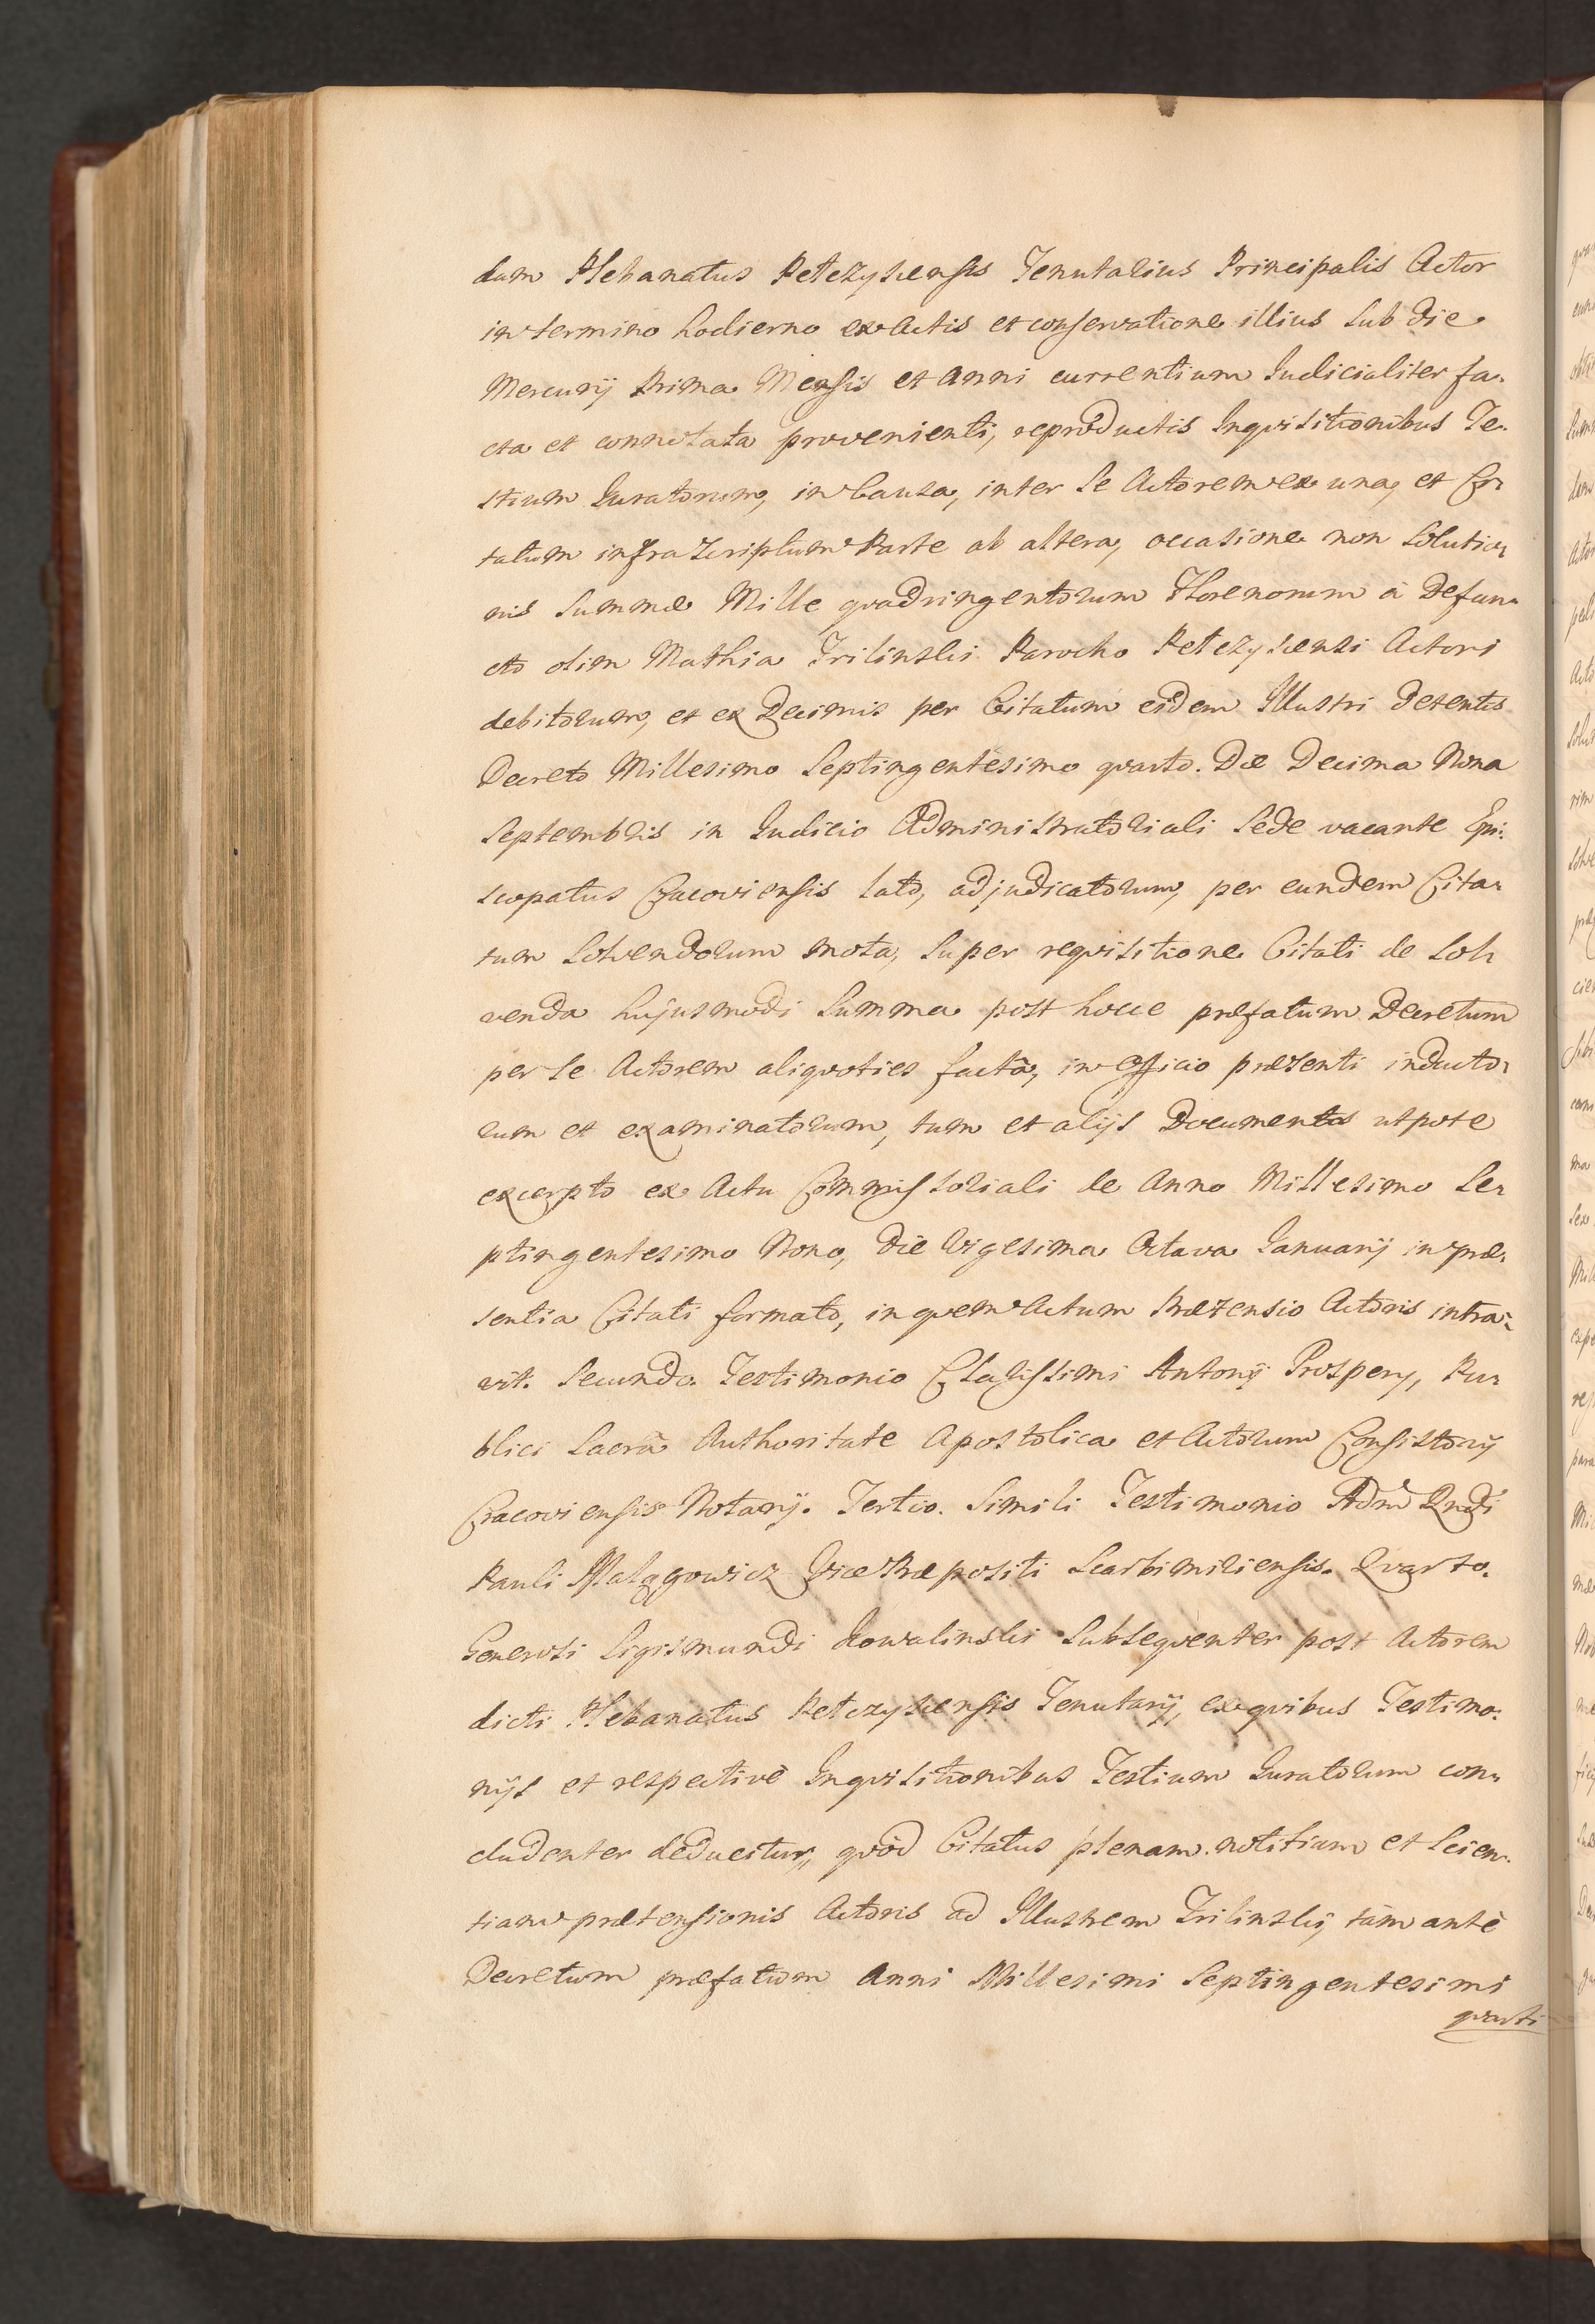 dam Plebanatus Petczyscensis Tenutarius Principalis Actor
in termino hodierno ex Actis et conservatione illius sub die
Mercurij Prima Mensis et Anni currentium Judicialiter fa-
cta et connotata provenienti, reproductis Inqvisitionibus Te-
stium Juratorum, in Causa, inter se Actorem ex una, et Ci-
tatum infra Scriptum Parte ab altera, occasione non Solutio-
nis Summæ Mille qvadringentorum Florenorum à Defun-
cto olim Mathia Trilinski Parocho Petczyscensi Actori
debitorum, et ex Decimis per Citatum eidem Illustri detentis
Decreto Millesimo Septingentesimo qvarto. Die Decima Nona
Septembris in Judicio Administratoriali Sede vacante Epi-
scopatus Cracoviensis lato, adjudicatorum, per eundem Cita-
tum Solvendorum mota, Super reqvisitione Citati de Sol-
venda hujusmodi Summa post hocce præfatum Decretum
per se Actorem aliqvoties factâ, in Officio præsenti inducto-
rum et examinatorum, tum et alijs Documentis utpote
excerpto ex Actu Commissoriali de Anno Millesimo Se-
ptingentesimo Nono, Die Vigesima Octava Januarij in præ-
sentia Citati formato, in qvem Actum Prætensio Actoris intra-
vit. Secundo. Testimonio Clarissimi Antonij Prospery, Pu-
blici Sacrâ Authoritate Apostolica et Actorum Consistorij
Cracoviensis Notarij. Tertio. Simili Testimonio Adm Rndi
Pauli Vice Præpositi Scarbimiriensis. Qvarto.
Generosi Sigismundi Kowalinski Subseqventer post Actorem
dicti Plebanatus Petczyscensis Tenutarij, ex qvibus Testimo-
nijs et respective Inqvisitionibus Testium Juratorum con-
cludenter deducitur, qvòd Citatus plenam notitiam et Scien-
tiam prætensionis Actoris ad Illustrem Trilinski, tàm antè
Decretum præfatum Anni Millesimi Septingentesimi
qvarti